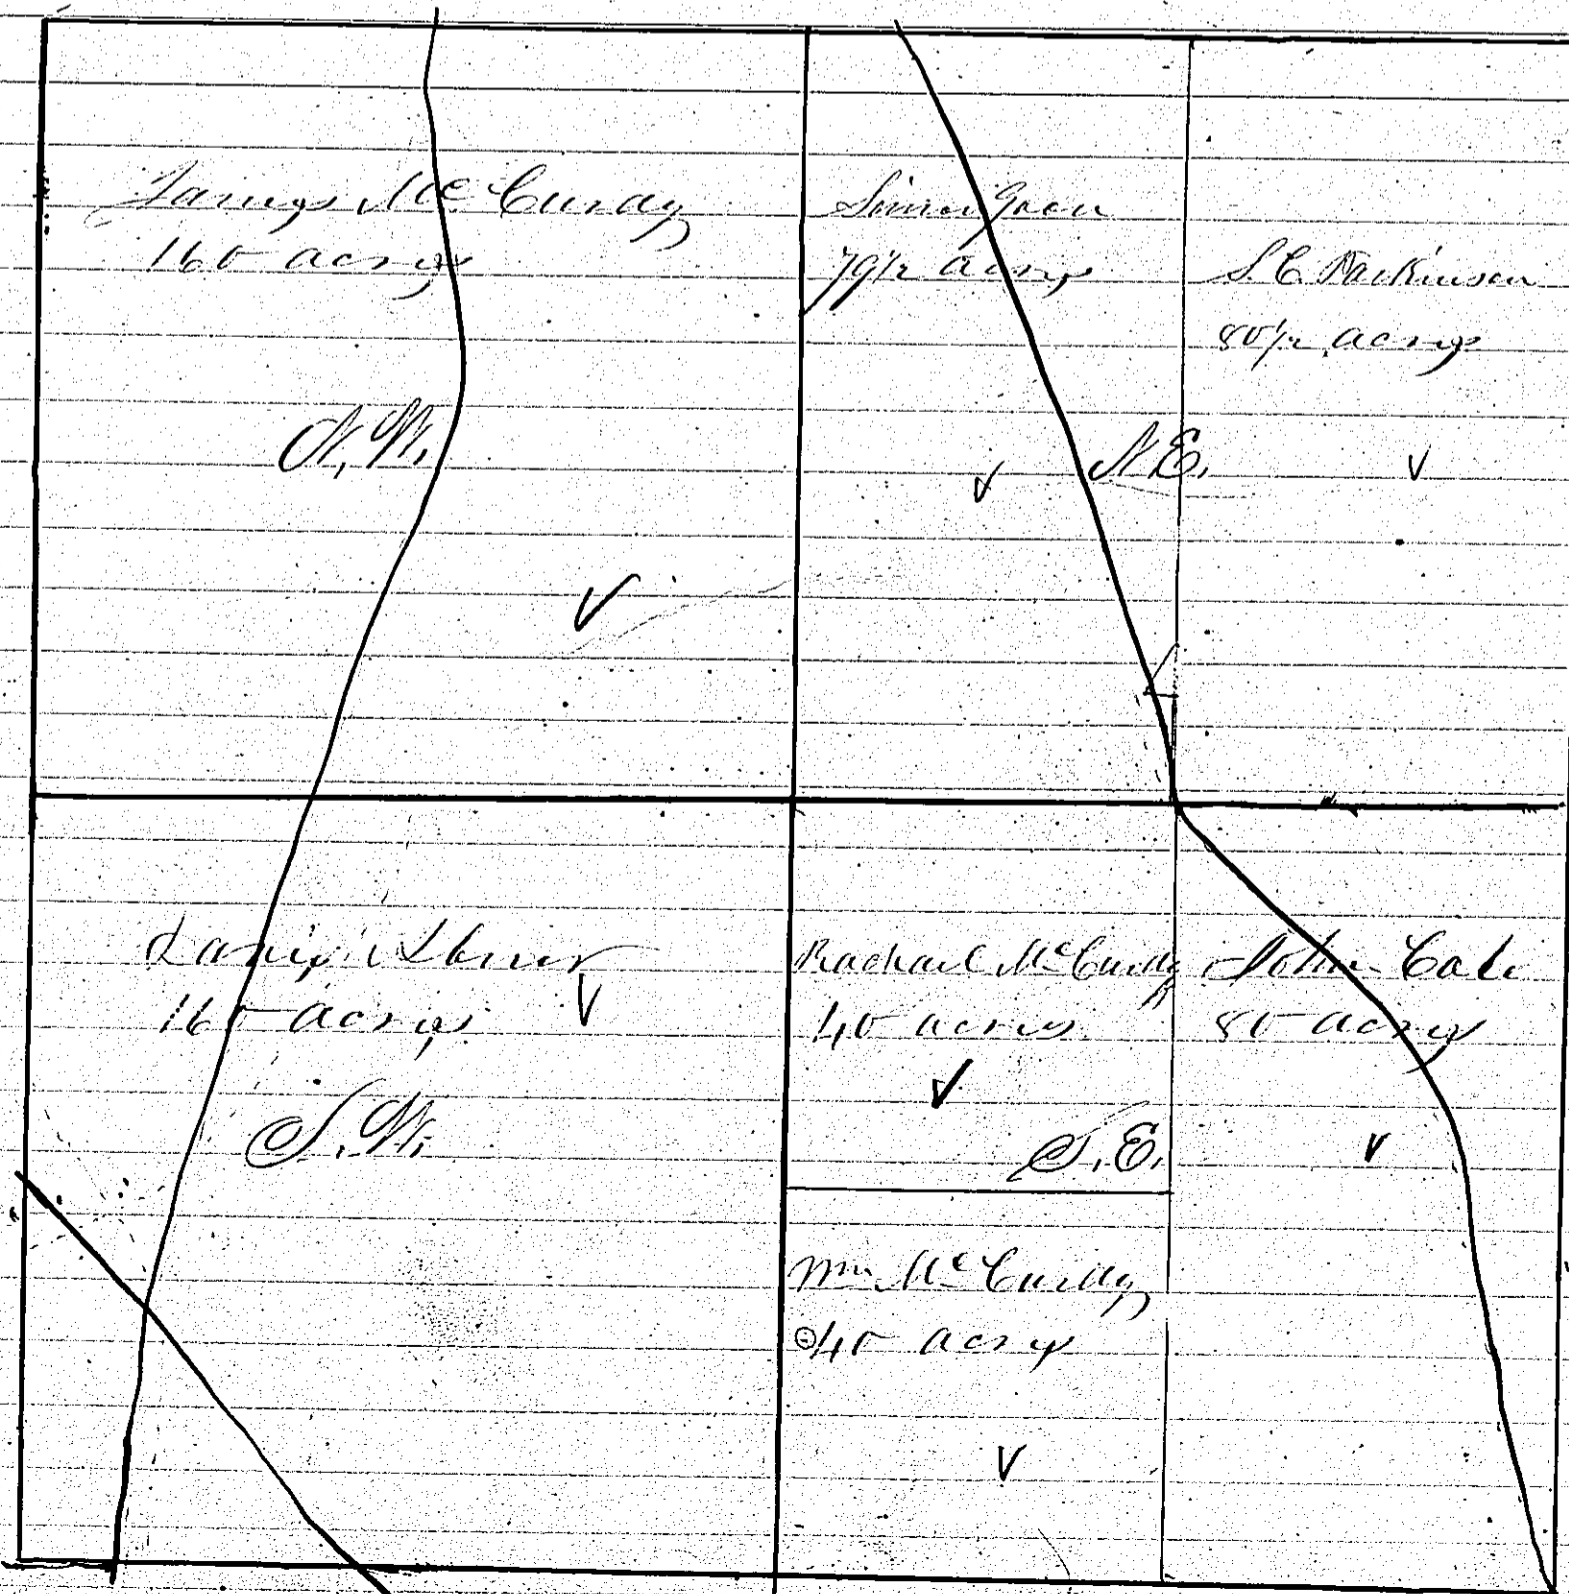 James McCurdy
160 acres
N.W.
Simon
79 1/2 acres
S. C. Parkinson
80 1/2 acres
N.E.
160 acres
S.W.
Rachael McCurdy
40 acres
S.E.
John Cale
80 acres
Wm McCurdy
40 acres